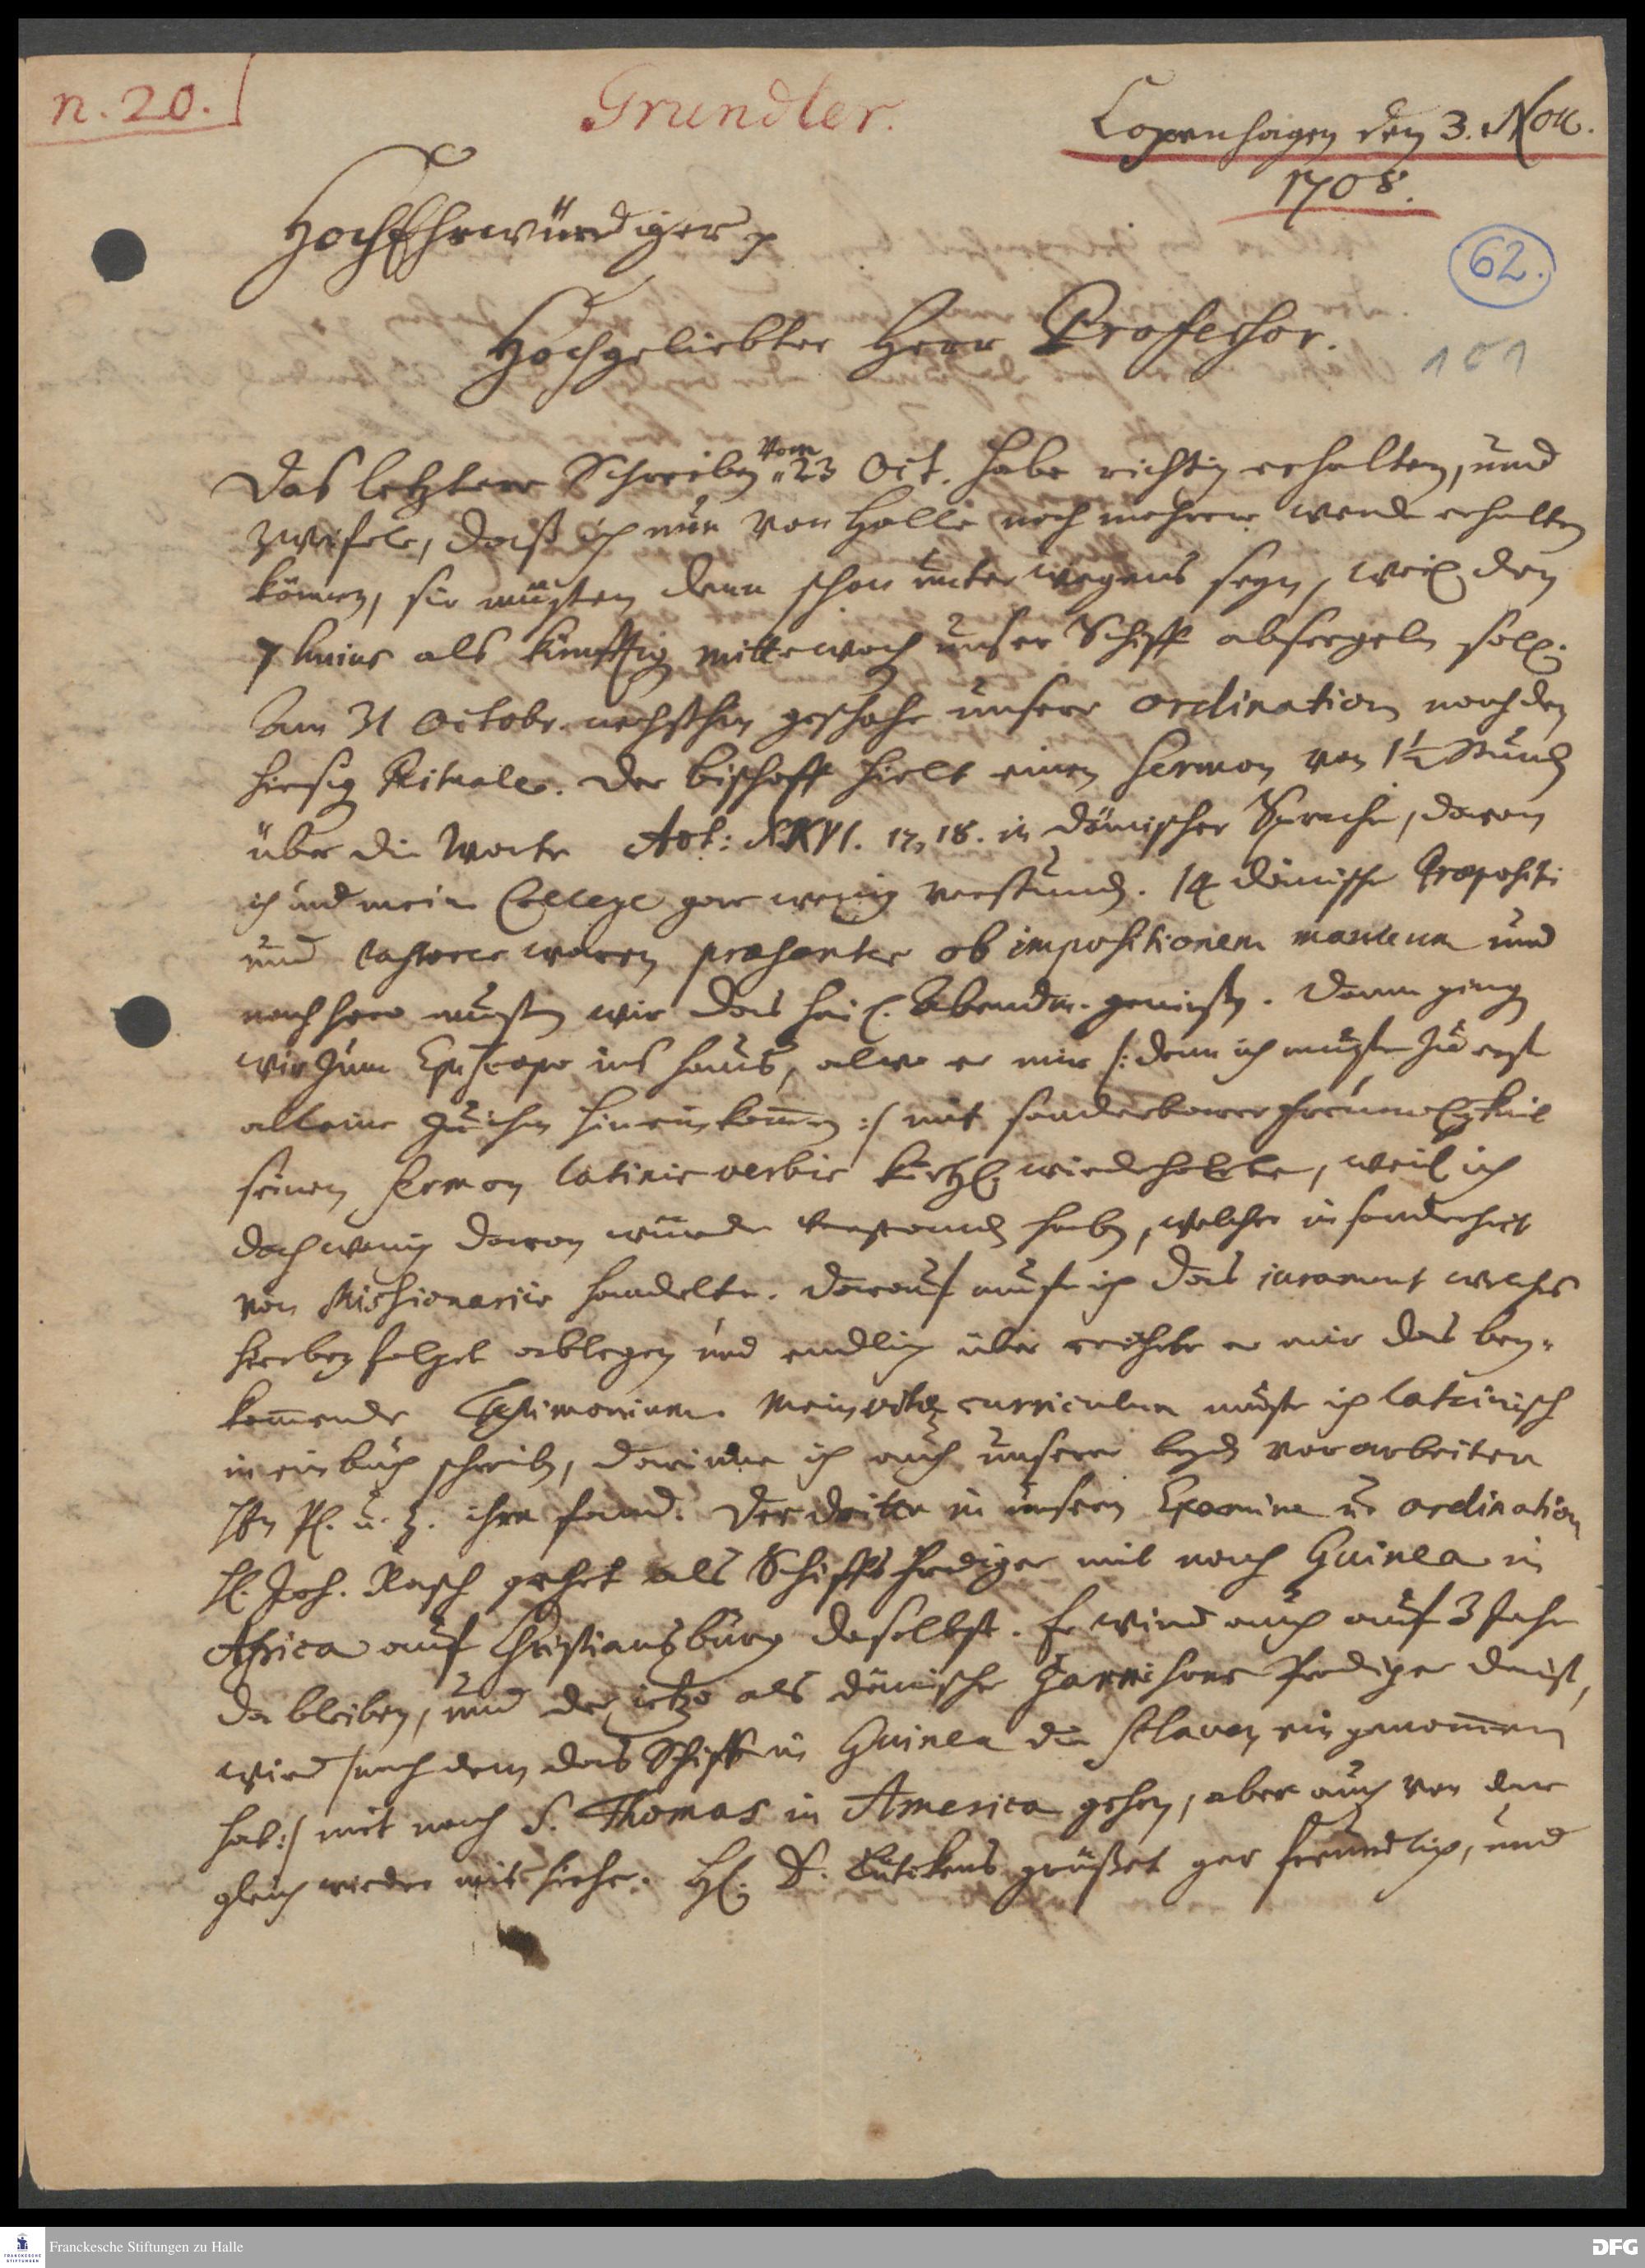 n. 20.
Grundler.
Copenhagen den 3. Nov.
1708.
62.
101
HochEhrwürdiger p
Hochgeliebter Herr Professor.
Das letztere Schreiben vom 23 Oct. habe richtig erhalten, und
zweifele, daß ich nun von Halle noch mehrere werde erhalten
können, sie müsten denn schon unterwegens seyn, weil den
7 huius als künfftig Mittewoch unser Schiff absegeln soll.
Am 31 Octobr. geschahe unsere ordination nach den
hiesig Rituale. Der Bischoff hielt einen Sermon von 1½ Stund
über die Worte Act: XXVI. 17, 18. in Dänischer Sprache, davon
ich und mein College gar wenig verstund. 14 dänische Præpositi
und Pastores waren præsentes ob impositionem manuum und
nachhero musten wir das heil. Abendm. genießen. Dann gingen
wir zum Episcopo ins Haus, alwo er mir /: denn ich muste zu erst
alleine zu ihm hinein kom̄en :/ mit sonderbarer Freundligkeit
seinen Sermon latinis verbis kurtzl. wiederholte, weil ich
doch wenig davon würde verstanden haben, welcher insonderheit
von Missionariis handelte. Darauf muste ich das jurament welches
hierbey folget ablegen und endlich überreichte er mir das bey-
kom̄ende Testimonium. Mein vitæ curriculum muste ich lateinisch
in ein buch schreiben, darinne ich auch unserer beyden vorarbeiter
Hn Pl. u. Z. ihre fand. Der dritte in unsern Examine u. ordination
H. Joh. Rasch gehet als Schiffs Prediger mit nach Guinea in
Africa auf Christiansburg daselbst. Er wird auch auf 3 Jahr
da bleiben, und der jetzo als dänischer Garnisons Prediger da ist,
wird /nach dem das Schiff in Guinea die Sclaven eingenom̄en
hab:/ mit nach S. Thomas in America gehen, aber auch von dar
gleich wieder mit hieher. H. D. Lütkens grüßet gar freundlich, und
Franckesche Stiftungen zu Halle
FRANCKESCHE
STIFTUNGEN
DFG